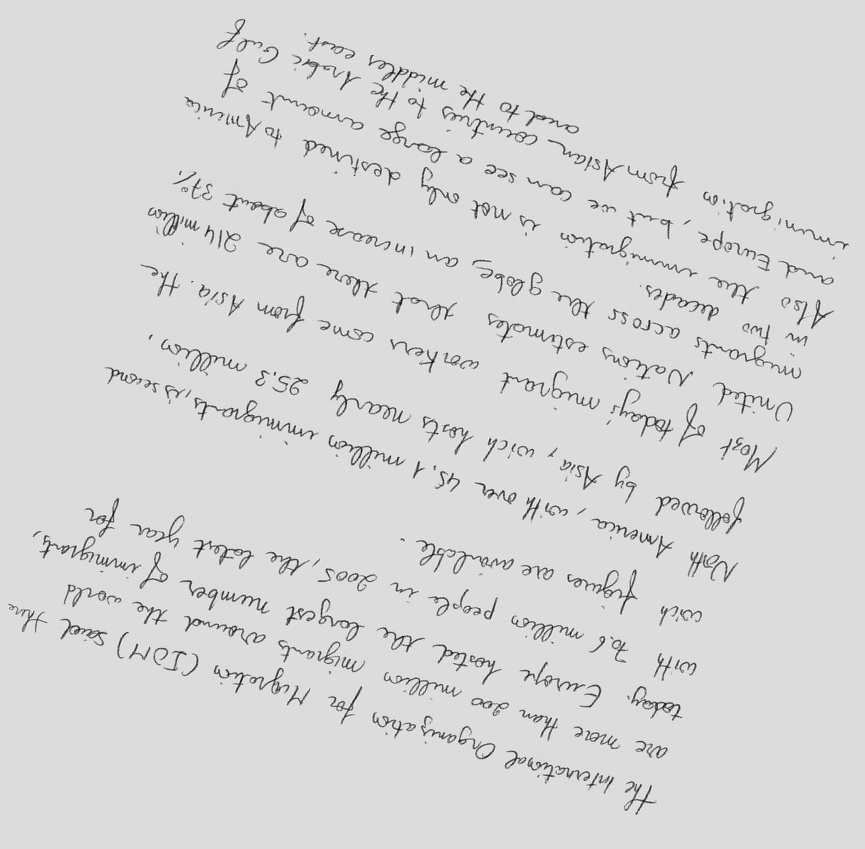 The International Organization for Migration (IOM) said there
are more than 200 million migrants around the world
today. Europe hosted the largest number of immigrants,
with 70.6 million people in 2005, the latest year for
wich figures are available.
North America, with over 45.1 million immigrants, is second
followed by Asia, wich hosts nearly 25.3 million,
Most of today's migrant workers come from Asia. the
United Nations estimates that there are 214 million
migrants across the globe, an increase of about 37%
in two decades.
Also the immigration is not only destined to America
and Europe, but we can see a large amount of
immigration from Asian countries to the Arabic Gulf
and to the middles east.